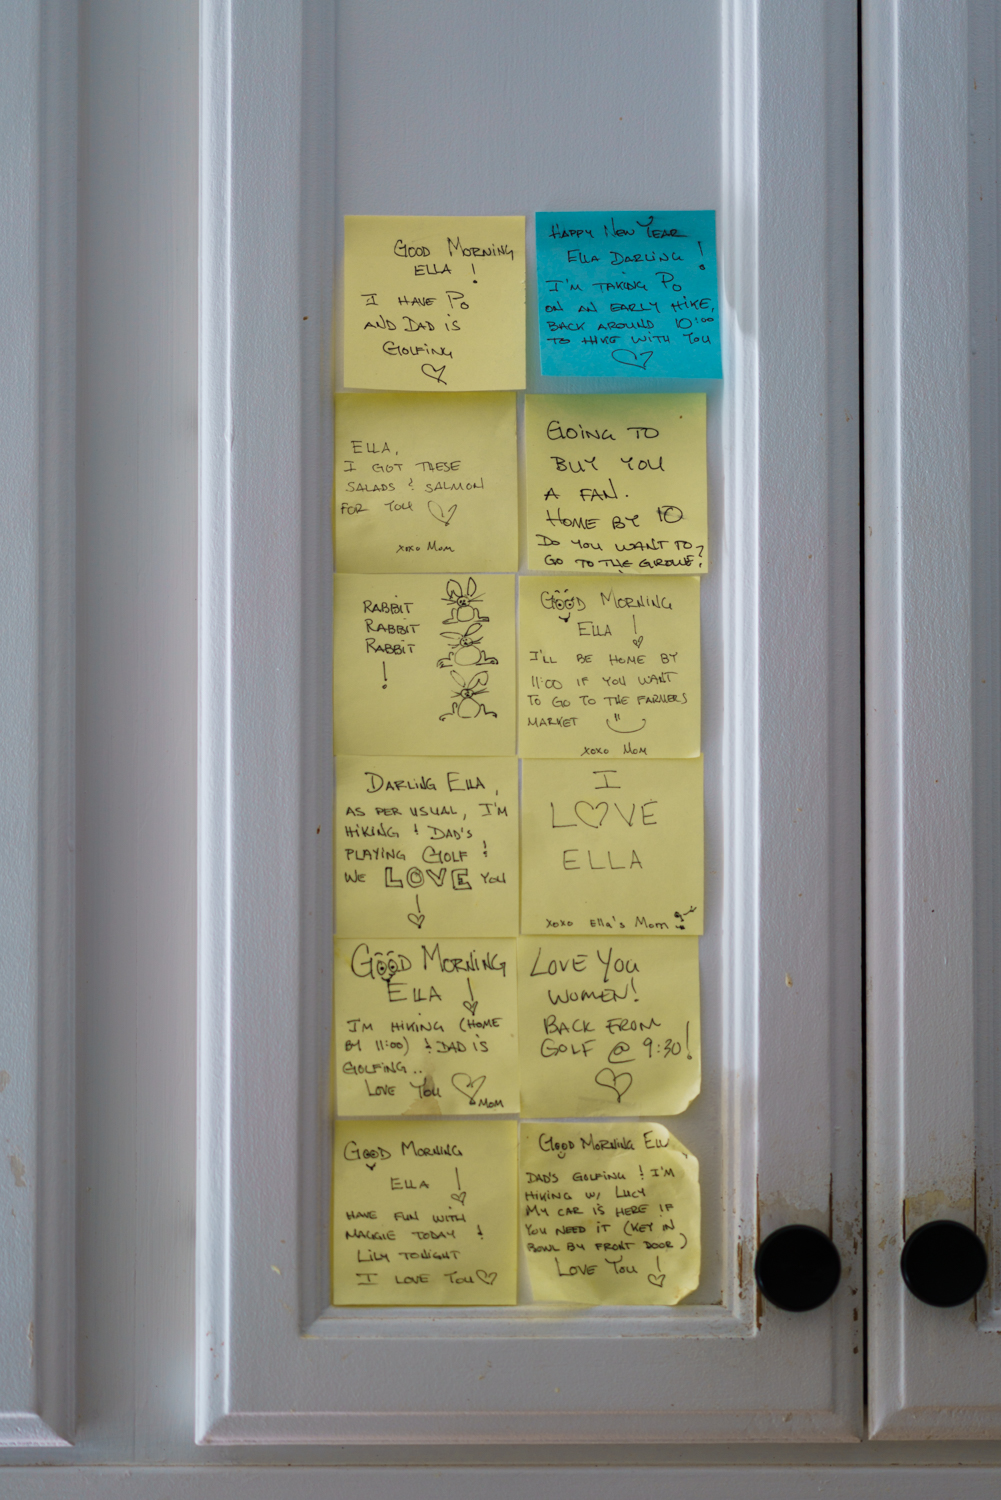 GOOD MORNING
ELLA !
I HAVE PO
AND DAD IS
GOLFING
HAPPY NEW YEAR
ELLA DARLING !
I'M TAKING PO
ON AN EARLY HIKE,
BACK AROUND 10:00
TO HIKE WITH YOU
ELLA,
I GOT THESE
SALADS & SALMON
FOR YOU
xoxo Mom
GOING TO
BUY YOU
A FAN.
HOME BY 10
DO YOU WANT TO
GO TO THE GROVE?
RABBIT
RABBIT
RABBIT
!
GOOD MORNING
ELLA !
I'LL BE HOME BY
11:00 IF YOU WANT
TO GO TO THE FARMERS
MARKET
xoxo Mom
DARLING ELLA,
AS PER USUAL, I'M
HIKING & DAD'S
PLAYING GOLF !
WE LOVE YOU
!
I
LOVE
ELLA
xoxo Ella's Mom
GOOD MORNING
ELLA !
I'M HIKING (HOME
BY 11:00) & DAD IS
GOLFING..
LOVE YOU
MOM
LOVE YOU
WOMEN!
BACK FROM
GOLF @ 9:30!
GOOD MORNING
ELLA !
HAVE FUN WITH
MAGGIE TODAY &
LILY TONIGHT
I LOVE YOU
GOOD MORNING ELLA
DAD'S GOLFING & I'M
HIKING W/ LUCY
MY CAR IS HERE IF
YOU NEED IT (KEY IN
BOWL BY FRONT DOOR)
LOVE YOU !